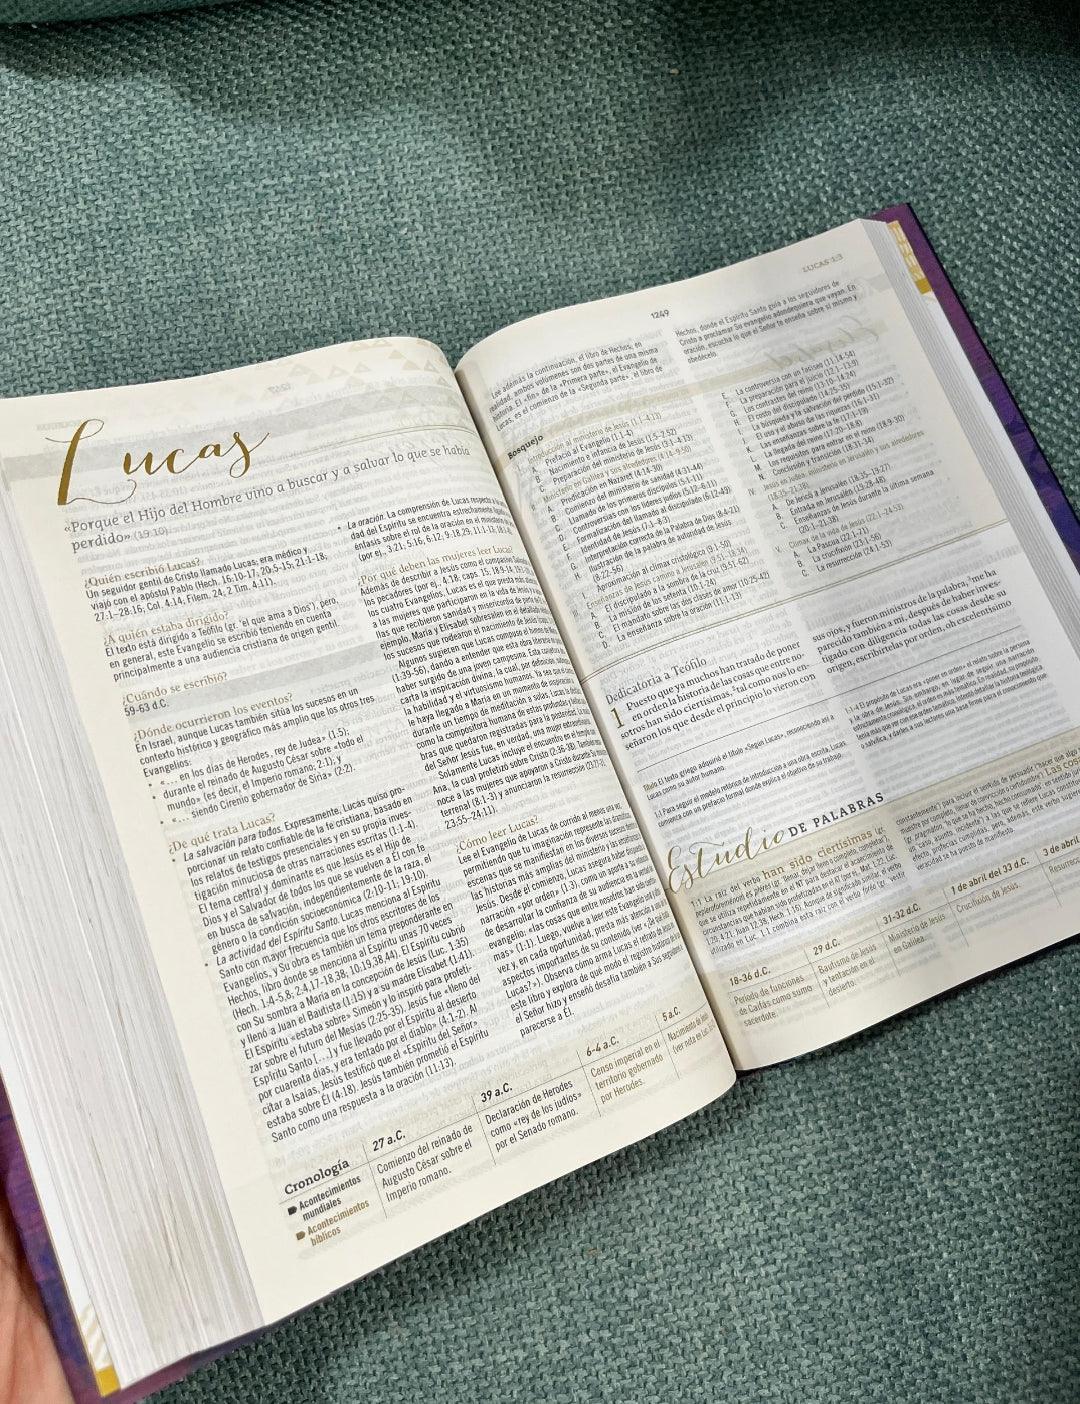 Lucas
«Porque el Hijo del Hombre vino a buscar y a salvar lo que se había
perdido» (19:10).
¿Quién escribió Lucas?
Un seguidor gentil de Cristo llamado Lucas; era médico y
viajó con el apóstol Pablo (Hech. 16:10-17; 20:5-15; 21:1-18;
27:1–28:16; Col. 4:14; Filem. 24; 2 Tim. 4:11).
¿A quién estaba dirigido?
El texto está dirigido a Teófilo (gr. 'el que ama a Dios'), pero,
en general, este Evangelio se escribió teniendo en cuenta
principalmente a una audiencia cristiana de origen gentil.
¿Cuándo se escribió?
59-63 d.C.
¿Dónde ocurrieron los eventos?
En Israel, aunque Lucas también sitúa los sucesos en un
contexto histórico y geográfico más amplio que los otros tres
Evangelios:
• «… en los días de Herodes, rey de Judea» (1:5);
• durante el reinado de Augusto César sobre «todo el
mundo» (es decir, el imperio romano; 2:1); y
• «… siendo Cirenio gobernador de Siria» (2:2).
¿De qué trata Lucas?
• La salvación para todos. Expresamente, Lucas quiso pro-
porcionar un relato confiable de la fe cristiana, basado en
los relatos de testigos presenciales y en su propia inves-
tigación minuciosa de otras narraciones escritas (1:1-4).
El tema central y dominante es que Jesús es el Hijo de
Dios y el Salvador de todos los que se vuelven a Él con fe
en busca de salvación, independientemente de la raza, el
género o la condición socioeconómica (2:10-11; 19:10).
• La actividad del Espíritu Santo. Lucas menciona al Espíritu
Santo con mayor frecuencia que los otros escritores de los
Evangelios, y Su obra es también un tema preponderante en
Hechos, libro donde se menciona al Espíritu unas 70 veces
(Hech. 1:4-5,8; 2:4,17-18,38; 10:19,38,44). El Espíritu cubrió
con Su sombra a María en la concepción de Jesús (Luc. 1:35)
y llenó a Juan el Bautista (1:15) y a su madre Elisabet (1:41).
El Espíritu «estaba sobre» Simeón y lo inspiró para profeti-
zar sobre el futuro del Mesías (2:25-35). Jesús fue «lleno del
Espíritu Santo […] y fue llevado por el Espíritu al desierto
por cuarenta días, y era tentado por el diablo» (4:1-2). Al
citar a Isaías, Jesús testificó que el «Espíritu del Señor»
estaba sobre Él (4:18). Jesús también prometió el Espíritu
Santo como una respuesta a la oración (11:13).
• La oración. La comprensión de Lucas respecto a
dad del Espíritu se encuentra estrechamente
énfasis sobre el rol de la oración en el
¿Por qué deben las mujeres leer Lucas?
Además de describir a Jesús como el compasivo
los cuatro Evangelios, Lucas es el que presta más
a las mujeres que participaron en la vida de Jesús
las que recibieron sanidad y misericordia de parte
ejemplo, María y Elisabet sobresalen en el detallado
los sucesos que rodearon el nacimiento de Jesús
Algunos sugieren que Lucas compuso el
(1:39-56), dando a entender que esta obra literaria
haber surgido de una joven campesina. Esta
carta la inspiración divina, la cual, por definición,
la habilidad y el virtuosismo humanos. Ya sea que
le haya llegado a María en un momento de inspiración
durante un tiempo de meditación a solas, Lucas la
como la compositora humana de estas profundas
bras que quedaron registradas para la posteridad. La
del Señor Jesús fue, en verdad, una mujer
Solamente Lucas incluye el encuentro en el templo
Ana, la cual profetizó sobre Cristo (2:36-38). También
noce a las mujeres que apoyaron a Cristo durante Su
terrenal (8:1-3) y anunciaron la resurrección
23:55–24:11).
¿Cómo leer Lucas?
Lee el Evangelio de Lucas de corrido al menos una vez,
permitiendo que tu imaginación represente las
escenas que se manifiestan en los diversos sucesos
las historias más amplias del ministerio y las enseñanzas
Jesús. Desde el comienzo, Lucas asegura haber
narración «por orden» (1:3), como un apoyo
de desarrollar la confianza de su audiencia en la
evangelio: «las cosas que entre nosotros han sido
mas» (1:1). Luego, vuelve a leer este Evangelio
vez y, en cada oportunidad, presta más atención a
aspectos importantes de su contenido
Lucas?»). Observa cómo arma Lucas el
este libro y explora de qué modo el registro
el Señor hizo y enseñó desafía también a Sus
parecerse a Él.
Cronología
Acontecimientos
mundiales
Acontecimientos
bíblicos
27 a.C.
Comienzo del reinado de
Augusto César sobre el
Imperio romano.
39 a.C.
Declaración de Herodes
como «rey de los judíos»
por el Senado romano.
6-4 a.C.
Censo imperial en el
territorio gobernado
por Herodes.
5 a.C.
Nacimiento de
(ver nota en Luc.
1249
LUCAS 1:3
Lee además la continuación, el libro de Hechos; en
realidad, ambos volúmenes son dos partes de una misma
historia. El «fin» de la «Primera parte», el Evangelio de
Lucas, es el comienzo de la «Segunda parte», el libro de
Hechos, donde el Espíritu Santo guía a los seguidores de
Cristo a proclamar Su evangelio adondequiera que vayan. En
oración, escucha lo que el Señor te enseña sobre sí mismo y
obedécelo.
Bosquejo
I. Introducción al ministerio de Jesús (1:1–4:13)
A. Prefacio al Evangelio (1:1-4)
B. Nacimiento e infancia de Jesús (1:5–2:52)
C. Preparación del ministerio de Jesús (3:1–4:13)
II. Ministerio en Galilea y sus alrededores (4:14–9:50)
A. Predicación en Nazaret (4:14-30)
B. Comienzo del ministerio de sanidad (4:31-44)
C. Llamado de los primeros discípulos (5:1-11)
D. Controversias con los líderes judíos (5:12–6:11)
E. Formalización del llamado al discipulado (6:12-49)
F. Identidad de Jesús (7:1–8:3)
G. Interpretación correcta de la Palabra de Dios (8:4-21)
H. Ilustración de la palabra de autoridad de Jesús
(8:22-56)
I. Aproximación al clímax cristológico (9:1-50)
III. Enseñanzas de Jesús camino a Jerusalén (9:51–18:34)
A. El discipulado a la sombra de la cruz (9:51-62)
B. La misión de los setenta (10:1-24)
C. El mandato sobre las dos clases de amor (10:25-42)
D. La enseñanza sobre la oración (11:1-13)
E. La controversia con los fariseos (11:14-54)
F. La preparación para el juicio (12:1–13:9)
G. Los contrastes del reino (13:10–14:24)
H. El costo del discipulado (14:25-35)
I. La búsqueda y la salvación del perdido (15:1-32)
J. El uso y el abuso de las riquezas (16:1-31)
K. Las enseñanzas sobre la fe (17:1-19)
L. La llegada del reino (17:20–18:8)
M. Los requisitos para entrar en el reino (18:9-30)
N. Conclusión y transición (18:31-34)
IV. Jesús en Judea; ministerio en Jerusalén y sus alrededores
(18:35–21:38)
A. De Jericó a Jerusalén (18:35–19:27)
B. Entrada en Jerusalén (19:28-48)
C. Enseñanzas de Jesús durante la última semana
(20:1–21:38)
V. Clímax de la vida de Jesús (22:1–24:53)
A. La Pascua (22:1-71)
B. La crucifixión (23:1-56)
C. La resurrección (24:1-53)
Dedicatoria a Teófilo
1 Puesto que ya muchos han tratado de poner
en orden la historia de las cosas que entre no-
sotros han sido ciertísimas, ²tal como nos lo en-
señaron los que desde el principio lo vieron con
sus ojos, y fueron ministros de la palabra, ³me ha
parecido también a mí, después de haber inves-
tigado con diligencia todas las cosas desde su
origen, escribírtelas por orden, oh excelentísimo
Título El texto griego adquirió el título «Según Lucas», reconociendo así a
Lucas como su autor humano.
1:1 Para seguir el modelo retórico de introducción a una obra escrita, Lucas
comienza con un prefacio formal donde explica el objetivo de su trabajo.
1:1-4 El propósito de Lucas era «poner en orden» el relato sobre la persona
y la obra de Jesús. Sin embargo, en lugar de seguir una narración
Estudio DE PALABRAS
1:1 La raíz del verbo han sido ciertísimas (gr.
18-36 d.C.
Período de funciones
de Caifás como sumo
sacerdote.
29 d.C.
Bautismo de Jesús
y tentación en el
desierto.
31-32 d.C.
Ministerio de Jesús
en Galilea.
1 de abril del 33 d.C.
Crucifixión de Jesús.
3 de abril